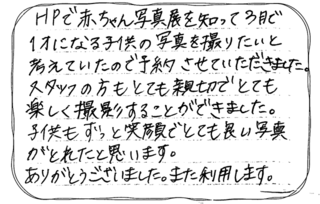 HPで赤ちゃん写真展を知って3月で
1才になる子供の写真を撮りたいと
考えていたので予約させていただきました。
スタッフの方もとても親切でとても
楽しく撮影することができました。
子供もずっと笑顔でとても良い写真
がとれたと思います。
ありがとうございました。また利用します。